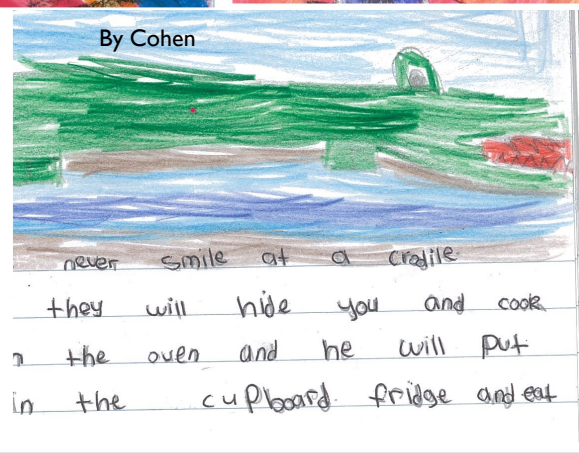 By Cohen
never smile at a crodile
they will hide you and cook
n the oven and he will put
in the cupboard. fridge and eat